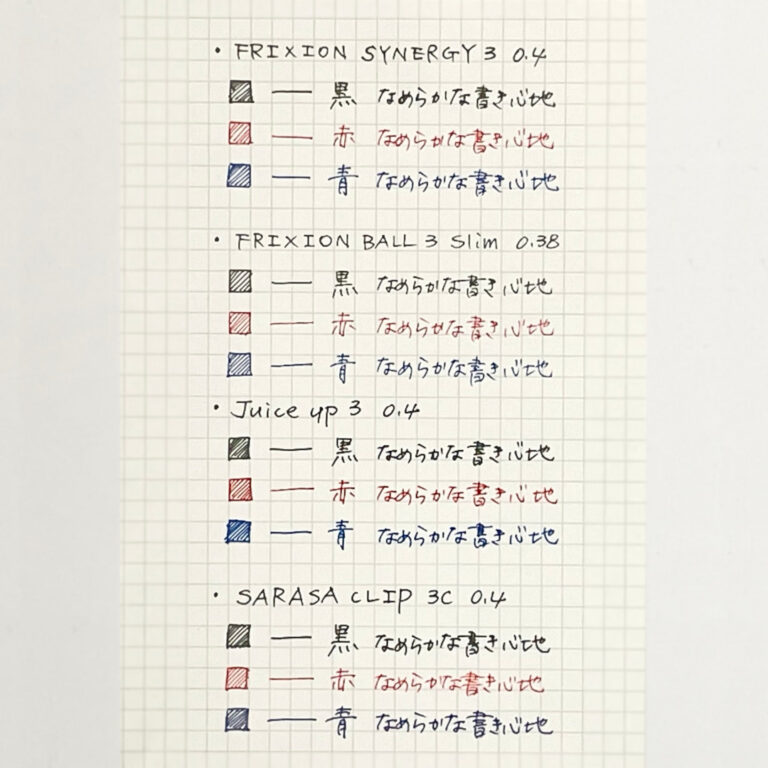 ・FRIXION SYNERGY 3 0.4
黒 なめらかな書き心地
赤 なめらかな書き心地
青 なめらかな書き心地
・FRIXION BALL 3 Slim 0.38
黒 なめらかな書き心地
赤 なめらかな書き心地
青 なめらかな書き心地
・Juice up 3 0.4
黒 なめらかな書き心地
赤 なめらかな書き心地
青 なめらかな書き心地
・SARASA CLIP 3C 0.4
黒 なめらかな書き心地
赤 なめらかな書き心地
青 なめらかな書き心地